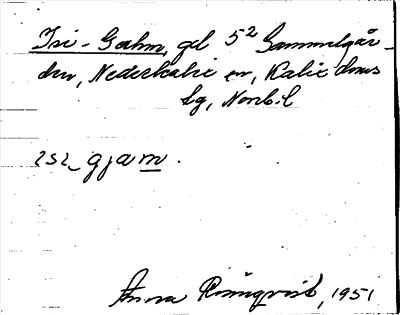 Isi-Gahm, gd 5² Gammelgår-
den, Nederkalix sn, Kalix doms
sg, Norrb. l
ɪsɪ_ gjam.
Anna Rönnqvist, 1951